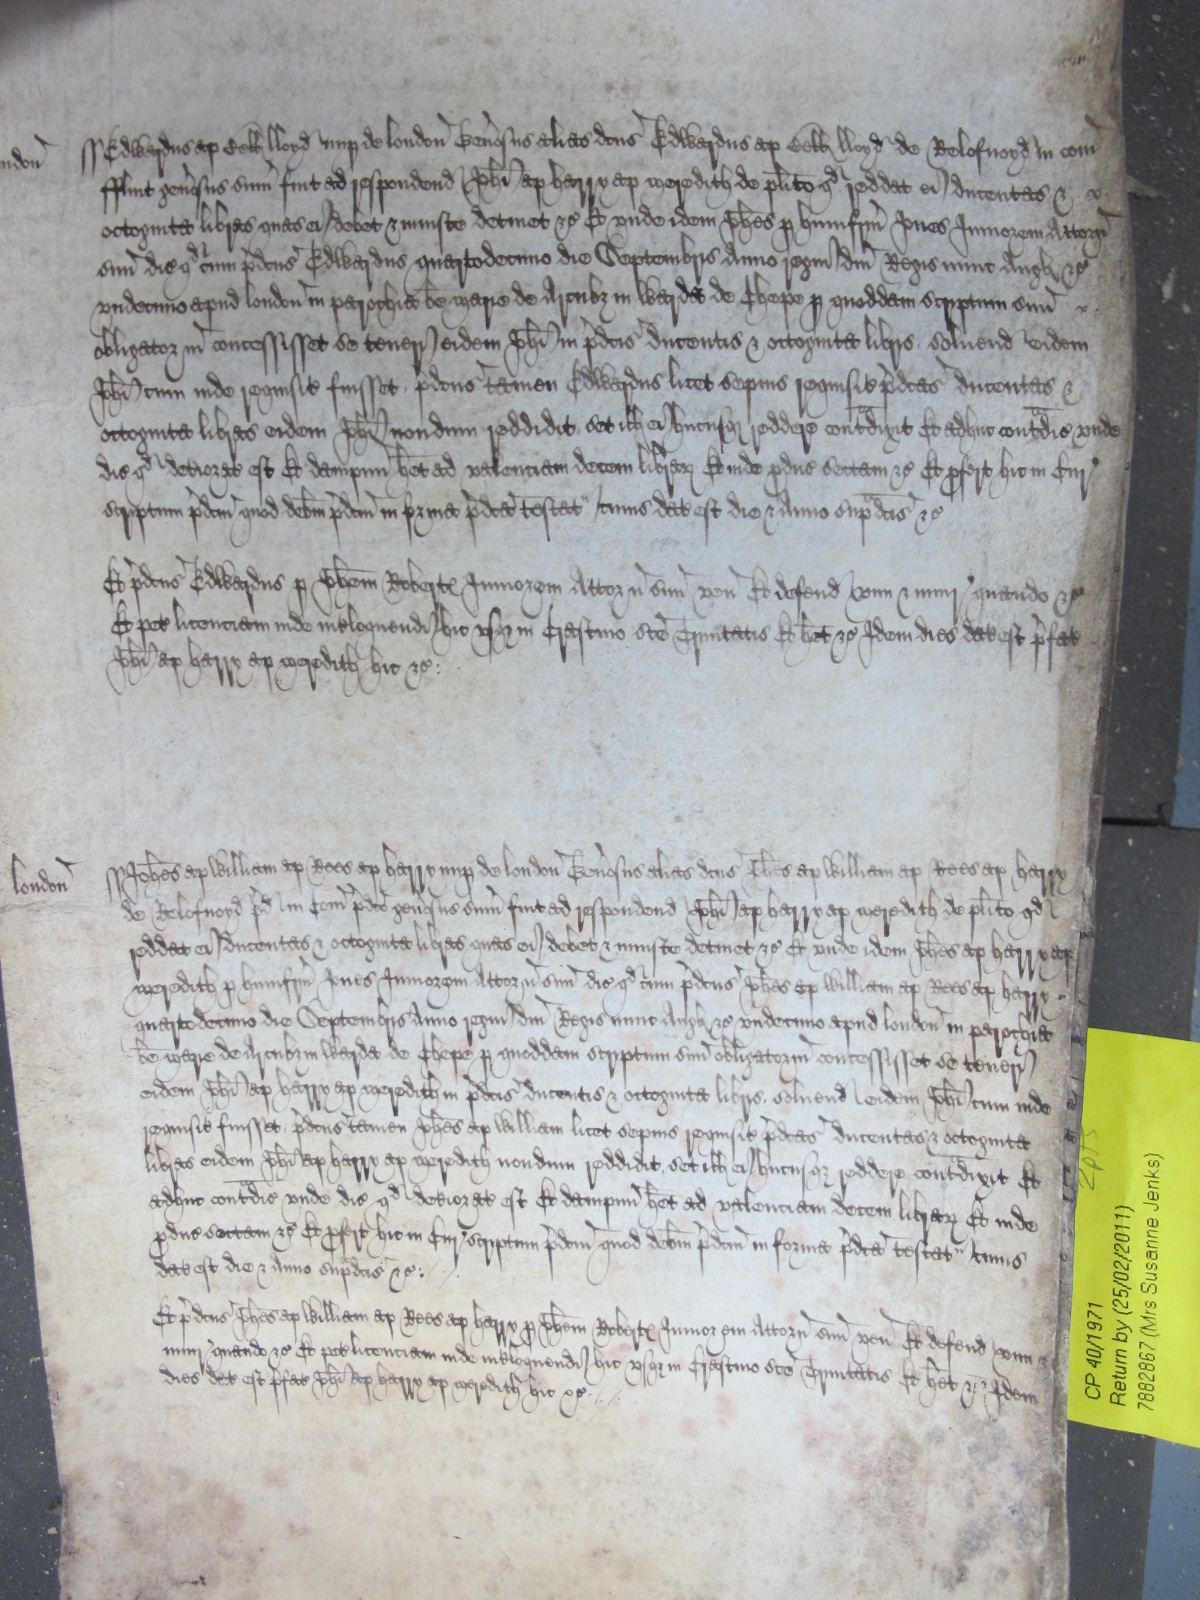 london
Edwardus ap lloyd nup de london Gen'osus alias dcus Edwardus ap lloyd de Relofnoyd in com
fflint gen'osus sum fuit ad respondend Joh'i ap harry ap meredith de pl'ito qd reddat ei ducentas &
octoginta libras quas ei debet & iniuste detinet &c Et unde idem Joh'es p humfrm Jones Juniorem Attorn
suu dic qd cum p'dcus Edwardus quartodecimo die Septembris Anno regni dni Regis nunc Angl &c
undecimo apud london in parochia be marie de Arcubz in Warda de Chepe p quoddam scriptum suu
obligatoriu concessisset se teneri eidem Joh'i in p'dcis ducentis & octoginta libris soluend eidem
Joh'i cum inde requisit fuisset p'dcus tamen Edwardus licet sepius requisit p'dcas ducentas &
octoginta libras eidem Joh'i nondum reddidit set ill ei hucusqz reddere contradixit Et adhuc contradic unde
dic qd deteriorat est Et dampnu h'et ad valenciam decem librarz Et inde p'duc sectam &c Et p'fert hic in Cur
scriptum p'dcm quod debm p'dcm in forma p'dca testat' cuius dat est die & Anno sup'dcis &c
Et p'dcus Edwardus p Joh'em Robertz Juniorem Attorn suu ven Et defend vim & iniur quando &c
Et pet licenciam inde int'loquendi hic usqz in Crastino sce Trinitatis Et h'et &c Idem dies dat est p'fat
Joh'i ap harry ap meredith hic &c
london
Joh'es ap William ap Rees ap harry nup de london Gen'osus alias dcus Joh'es ap William ap Rees ap harry
de Relofnoyd p'd in Com p'dco gen'osus sum fuit ad respondend Joh'i ap harry ap meredith de pl'ito qd
reddat ei ducentas & octoginta libras quas ei debet & iniuste detinet &c Et unde idem Joh'es ap harry ap
meredith p humfrm Jones Juniorem Attorn suu dic qd cum p'dcus Joh'es ap William ap Rees ap harry
quartodecimo die Septembris Anno regni dni Regis nunc Angl &c undecimo apud london in parochia
be marie de Arcubz in Warda de Chepe p quoddam scriptum suu obligatoriu concessisset se teneri
eidem Joh'i ap harry ap meredith in p'dcis ducentis & octoginta libris soluend eidem Joh'i cum inde
requisit fuisset p'dcus tamen Joh'es ap William licet sepius requisit p'dcas ducentas & octoginta
libras eidem Joh'i ap harry ap meredith nondum reddidit set ill ei hucusqz reddere contradixit Et
adhuc contradic unde dic qd deteriorat est Et dampnu h'et ad valenciam decem librarz Et inde
p'duc sectam &c Et p'fert hic in Cur scriptum p'dcm quod debm p'dcm in forma p'dca testat' cuius
dat est die & Anno sup'dcis &c
Et p'dcus Joh'es ap William ap Rees ap harry p Joh'em Robertz Juniorem Attorn suu ven Et defend vim &
iniur quando &c Et pet licenciam inde int'loquendi hic usqz in Crastino sce Trinitatis Et h'et &c Idem
dies dat est p'fat Joh'i ap harry ap meredith hic &c
CP 40/1971
Return by (25/02/2011)
7882867 (Mrs Susanne Jenks)